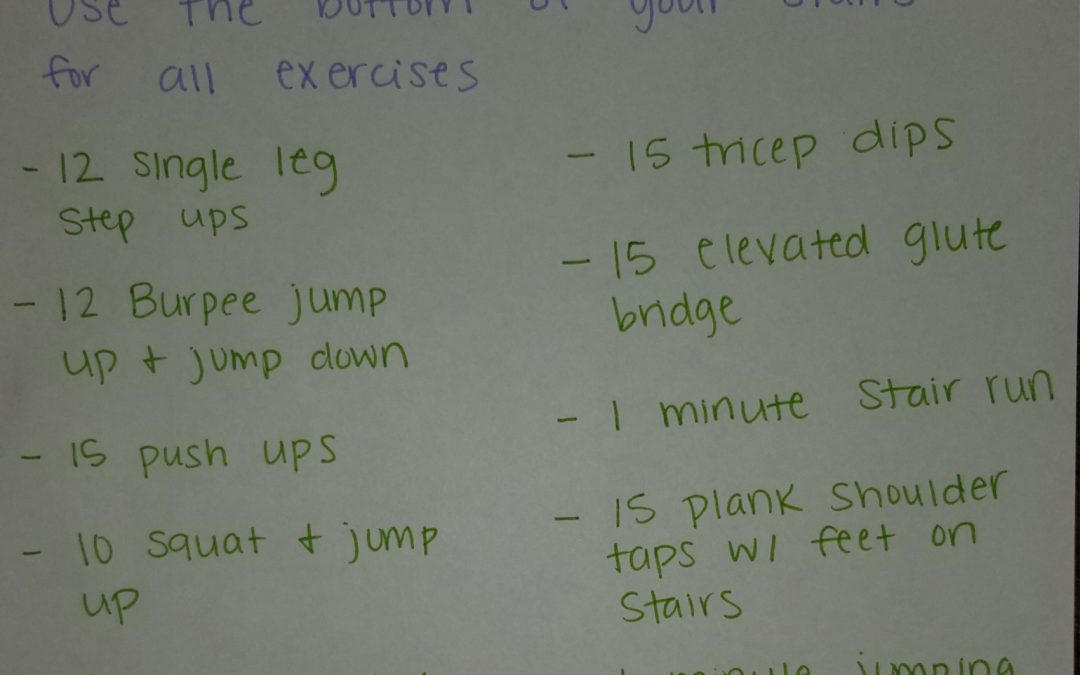 Use the bottom of your stairs
for all exercises
- 12 single leg
step ups
- 12 Burpee jump
up + jump down
- 15 push ups
- 10 squat + jump
up
- 15 tricep dips
- 15 elevated glute
bridge
- 1 minute stair run
- 15 plank shoulder
taps w/ feet on
stairs
minute jumping